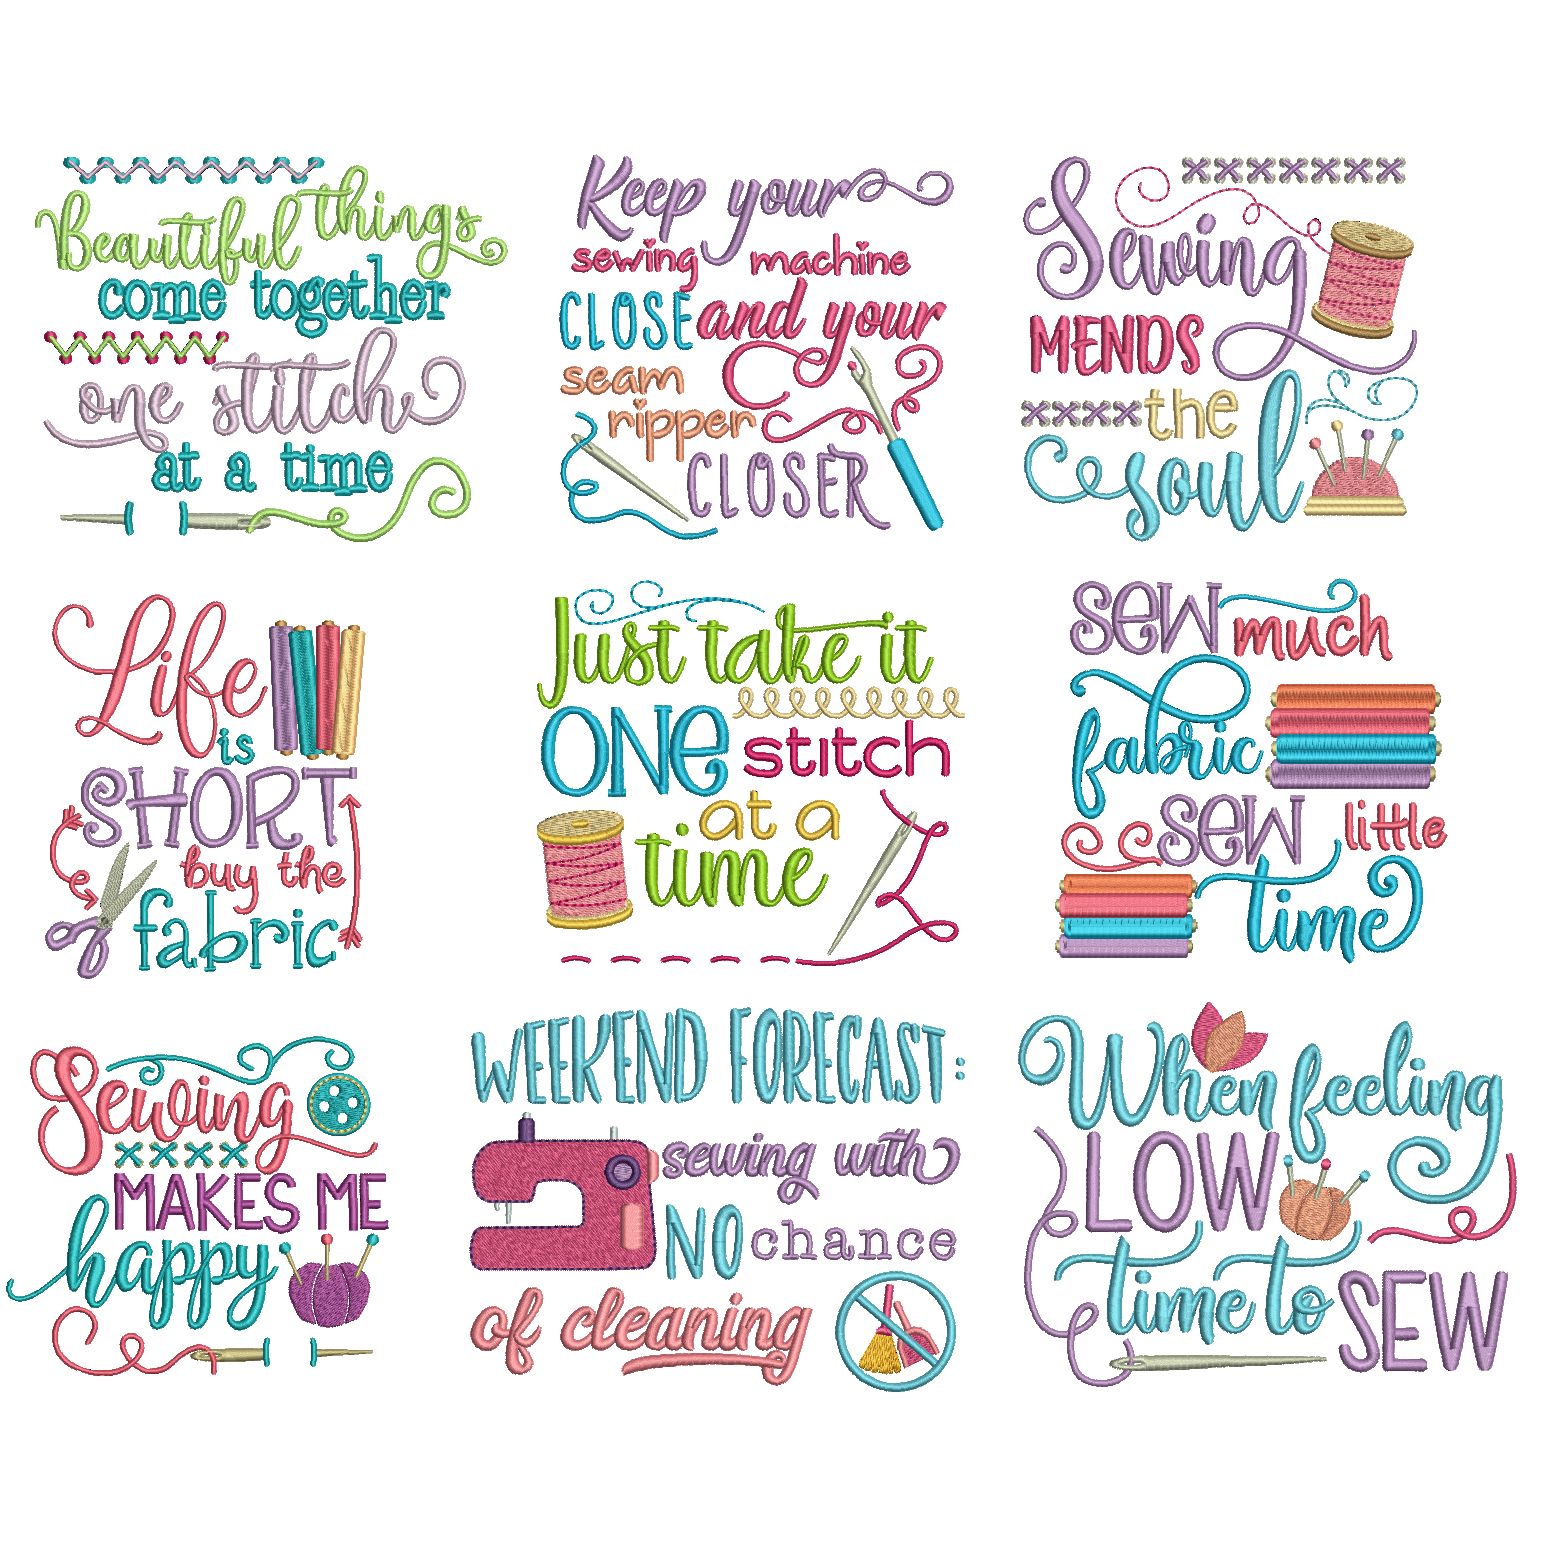 Beautiful things
come together
one stitch
at a time
Keep your
sewing machine
CLOSE and your
seam
ripper
CLOSER
Sewing
MENDS
the
soul
Life
is
SHORT
buy the
fabric
Just take it
ONE stitch
at a
time
sew much
fabric
sew little
time
Sewing
MAKES ME
happy
WEEKEND FORECAST:
sewing with
NO chance
of cleaning
When feeling
LOW
time to SEW